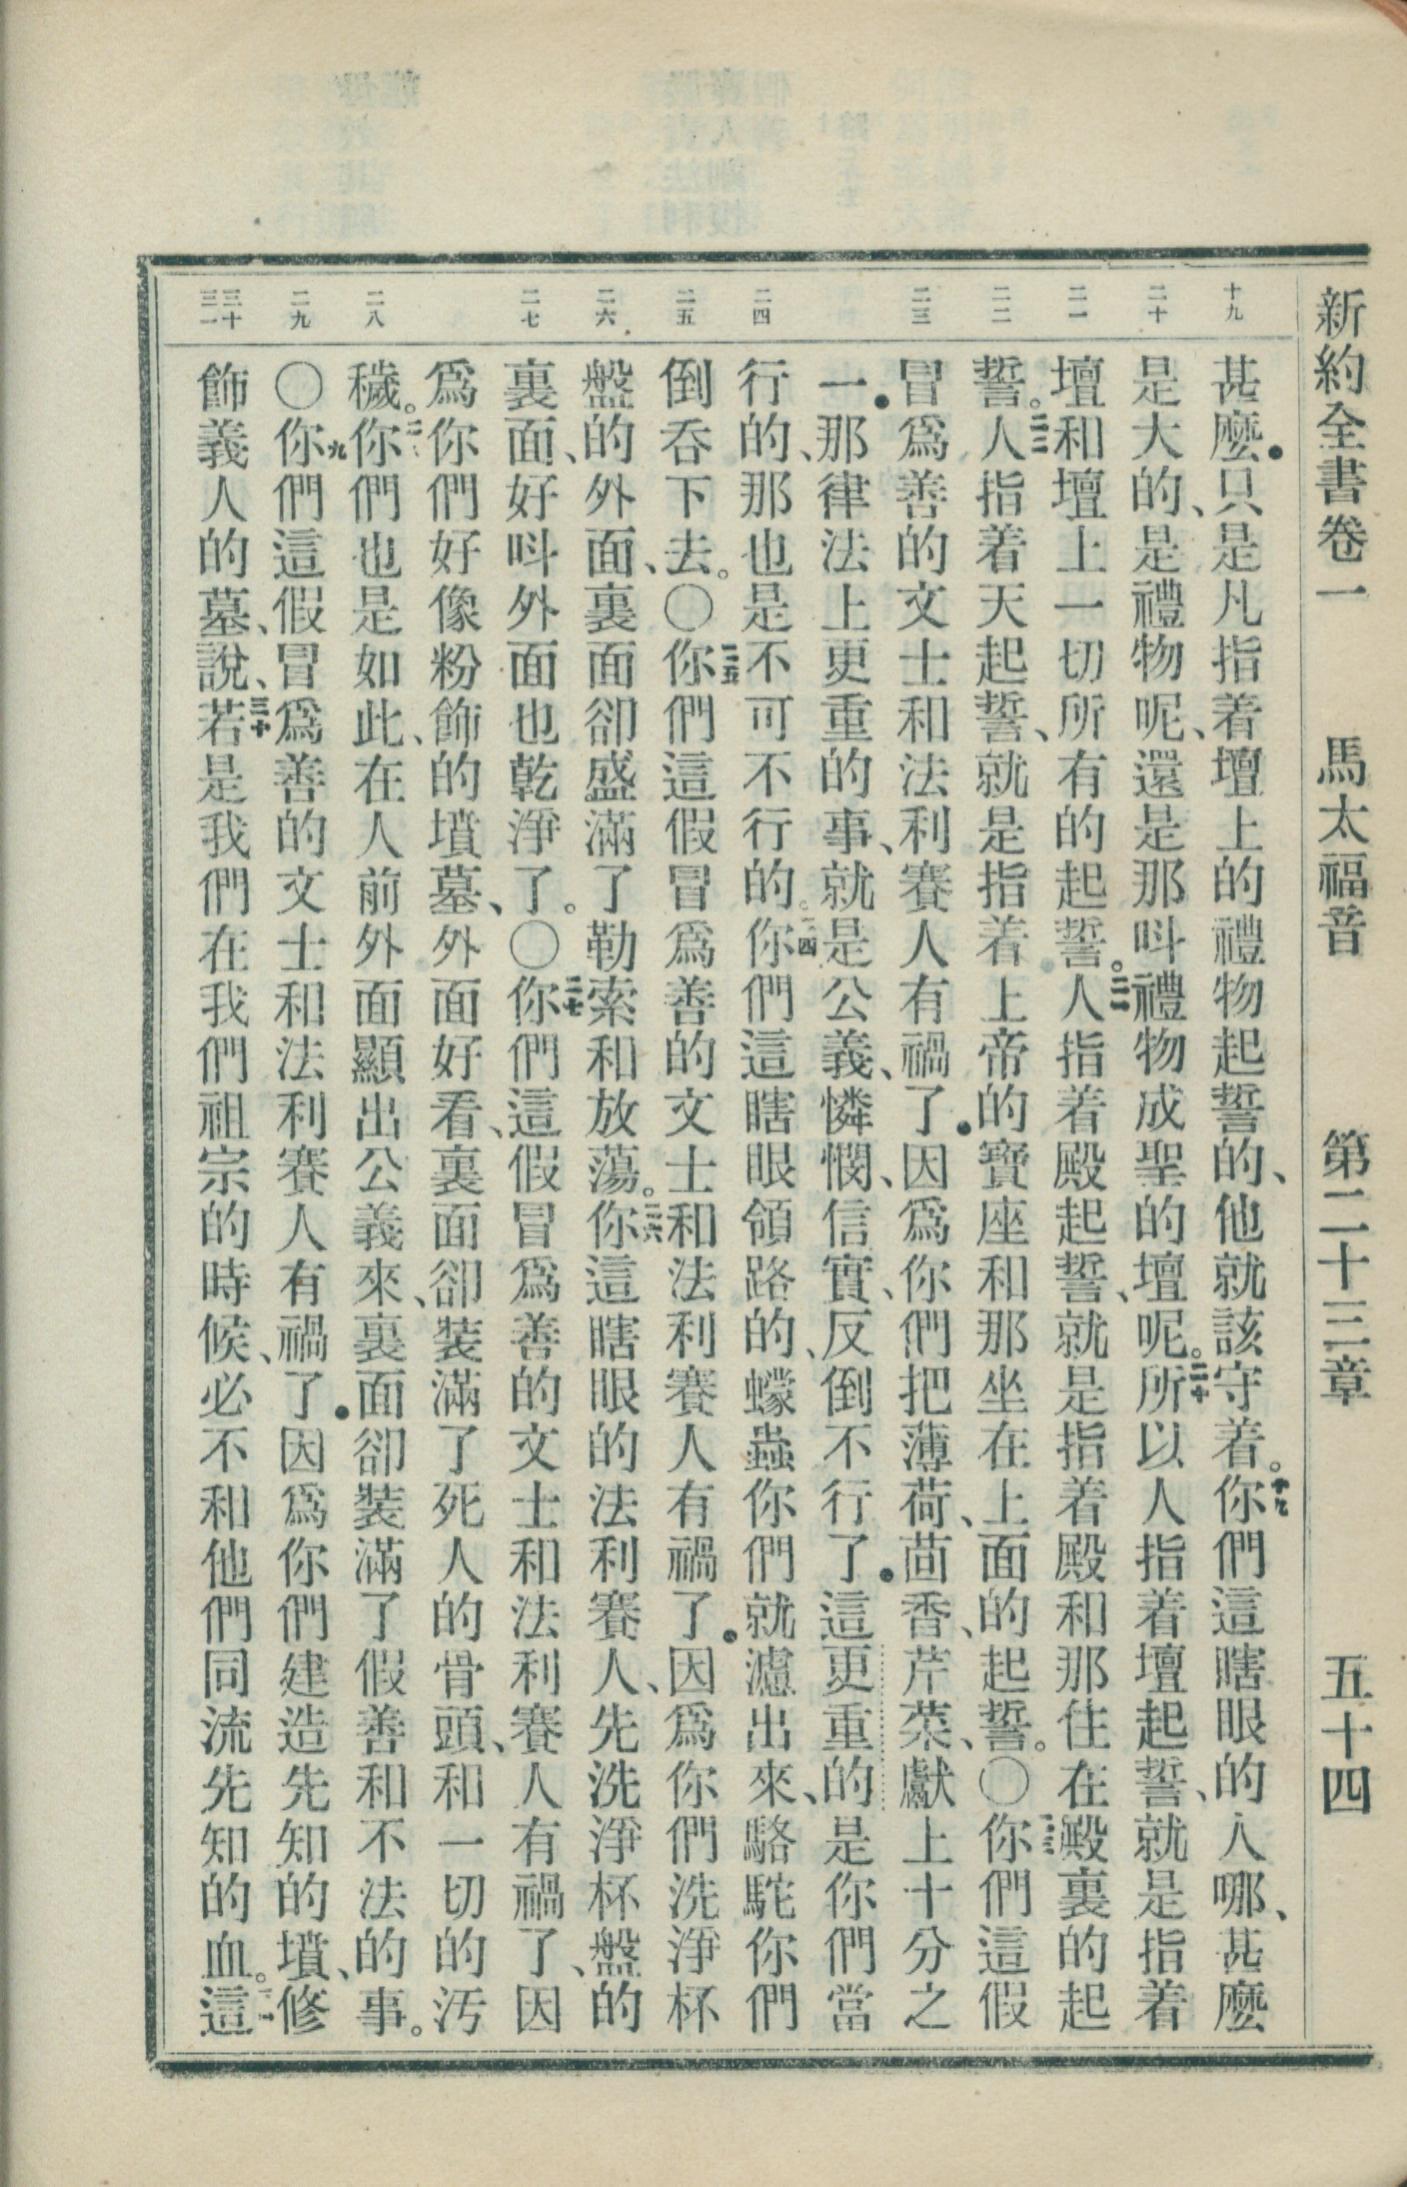 新約全書卷一 馬太福音 第二十三章 五十四
十九 二十 二一 二二 二三 二四 二五 二六 二七 二八 二九 三十 三一
甚麼．只是凡指着壇上的禮物起誓的、他就該守着。十九你們這瞎眼的人哪、甚麼
是大的、是禮物呢、還是那呌禮物成聖的壇呢。二十所以人指着壇起誓、就是指着
壇和壇上一切所有的起誓。二一人指着殿起誓、就是指着殿和那住在殿裏的起
誓。二二人指着天起誓、就是指着上帝的寶座和那坐在上面的起誓。〇二三你們這假
冒爲善的文士和法利賽人有禍了．因爲你們把薄荷、茴香、芹菜、獻上十分之
一．那律法上更重的事、就是公義、憐憫、信實、反倒不行了．這更重的是你們當
行的、那也是不可不行的。二四你們這瞎眼領路的、蠓蟲你們就濾出來、駱駝你們
倒吞下去。〇二五你們這假冒爲善的文士和法利賽人有禍了．因爲你們洗淨杯
盤的外面、裏面卻盛滿了勒索和放蕩。二六你這瞎眼的法利賽人、先洗淨杯盤的
裏面、好呌外面也乾淨了。〇二七你們這假冒爲善的文士和法利賽人有禍了、因
爲你們好像粉飾的墳墓、外面好看、裏面卻装滿了死人的骨頭、和一切的汚
穢。二八你們也是如此、在人前外面顯出公義來、裏面卻裝滿了假善和不法的事。
〇二九你們這假冒爲善的文士和法利賽人有禍了．因爲你們建造先知的墳、修
飾義人的墓、說、三十若是我們在我們祖宗的時候、必不和他們同流先知的血。三一這